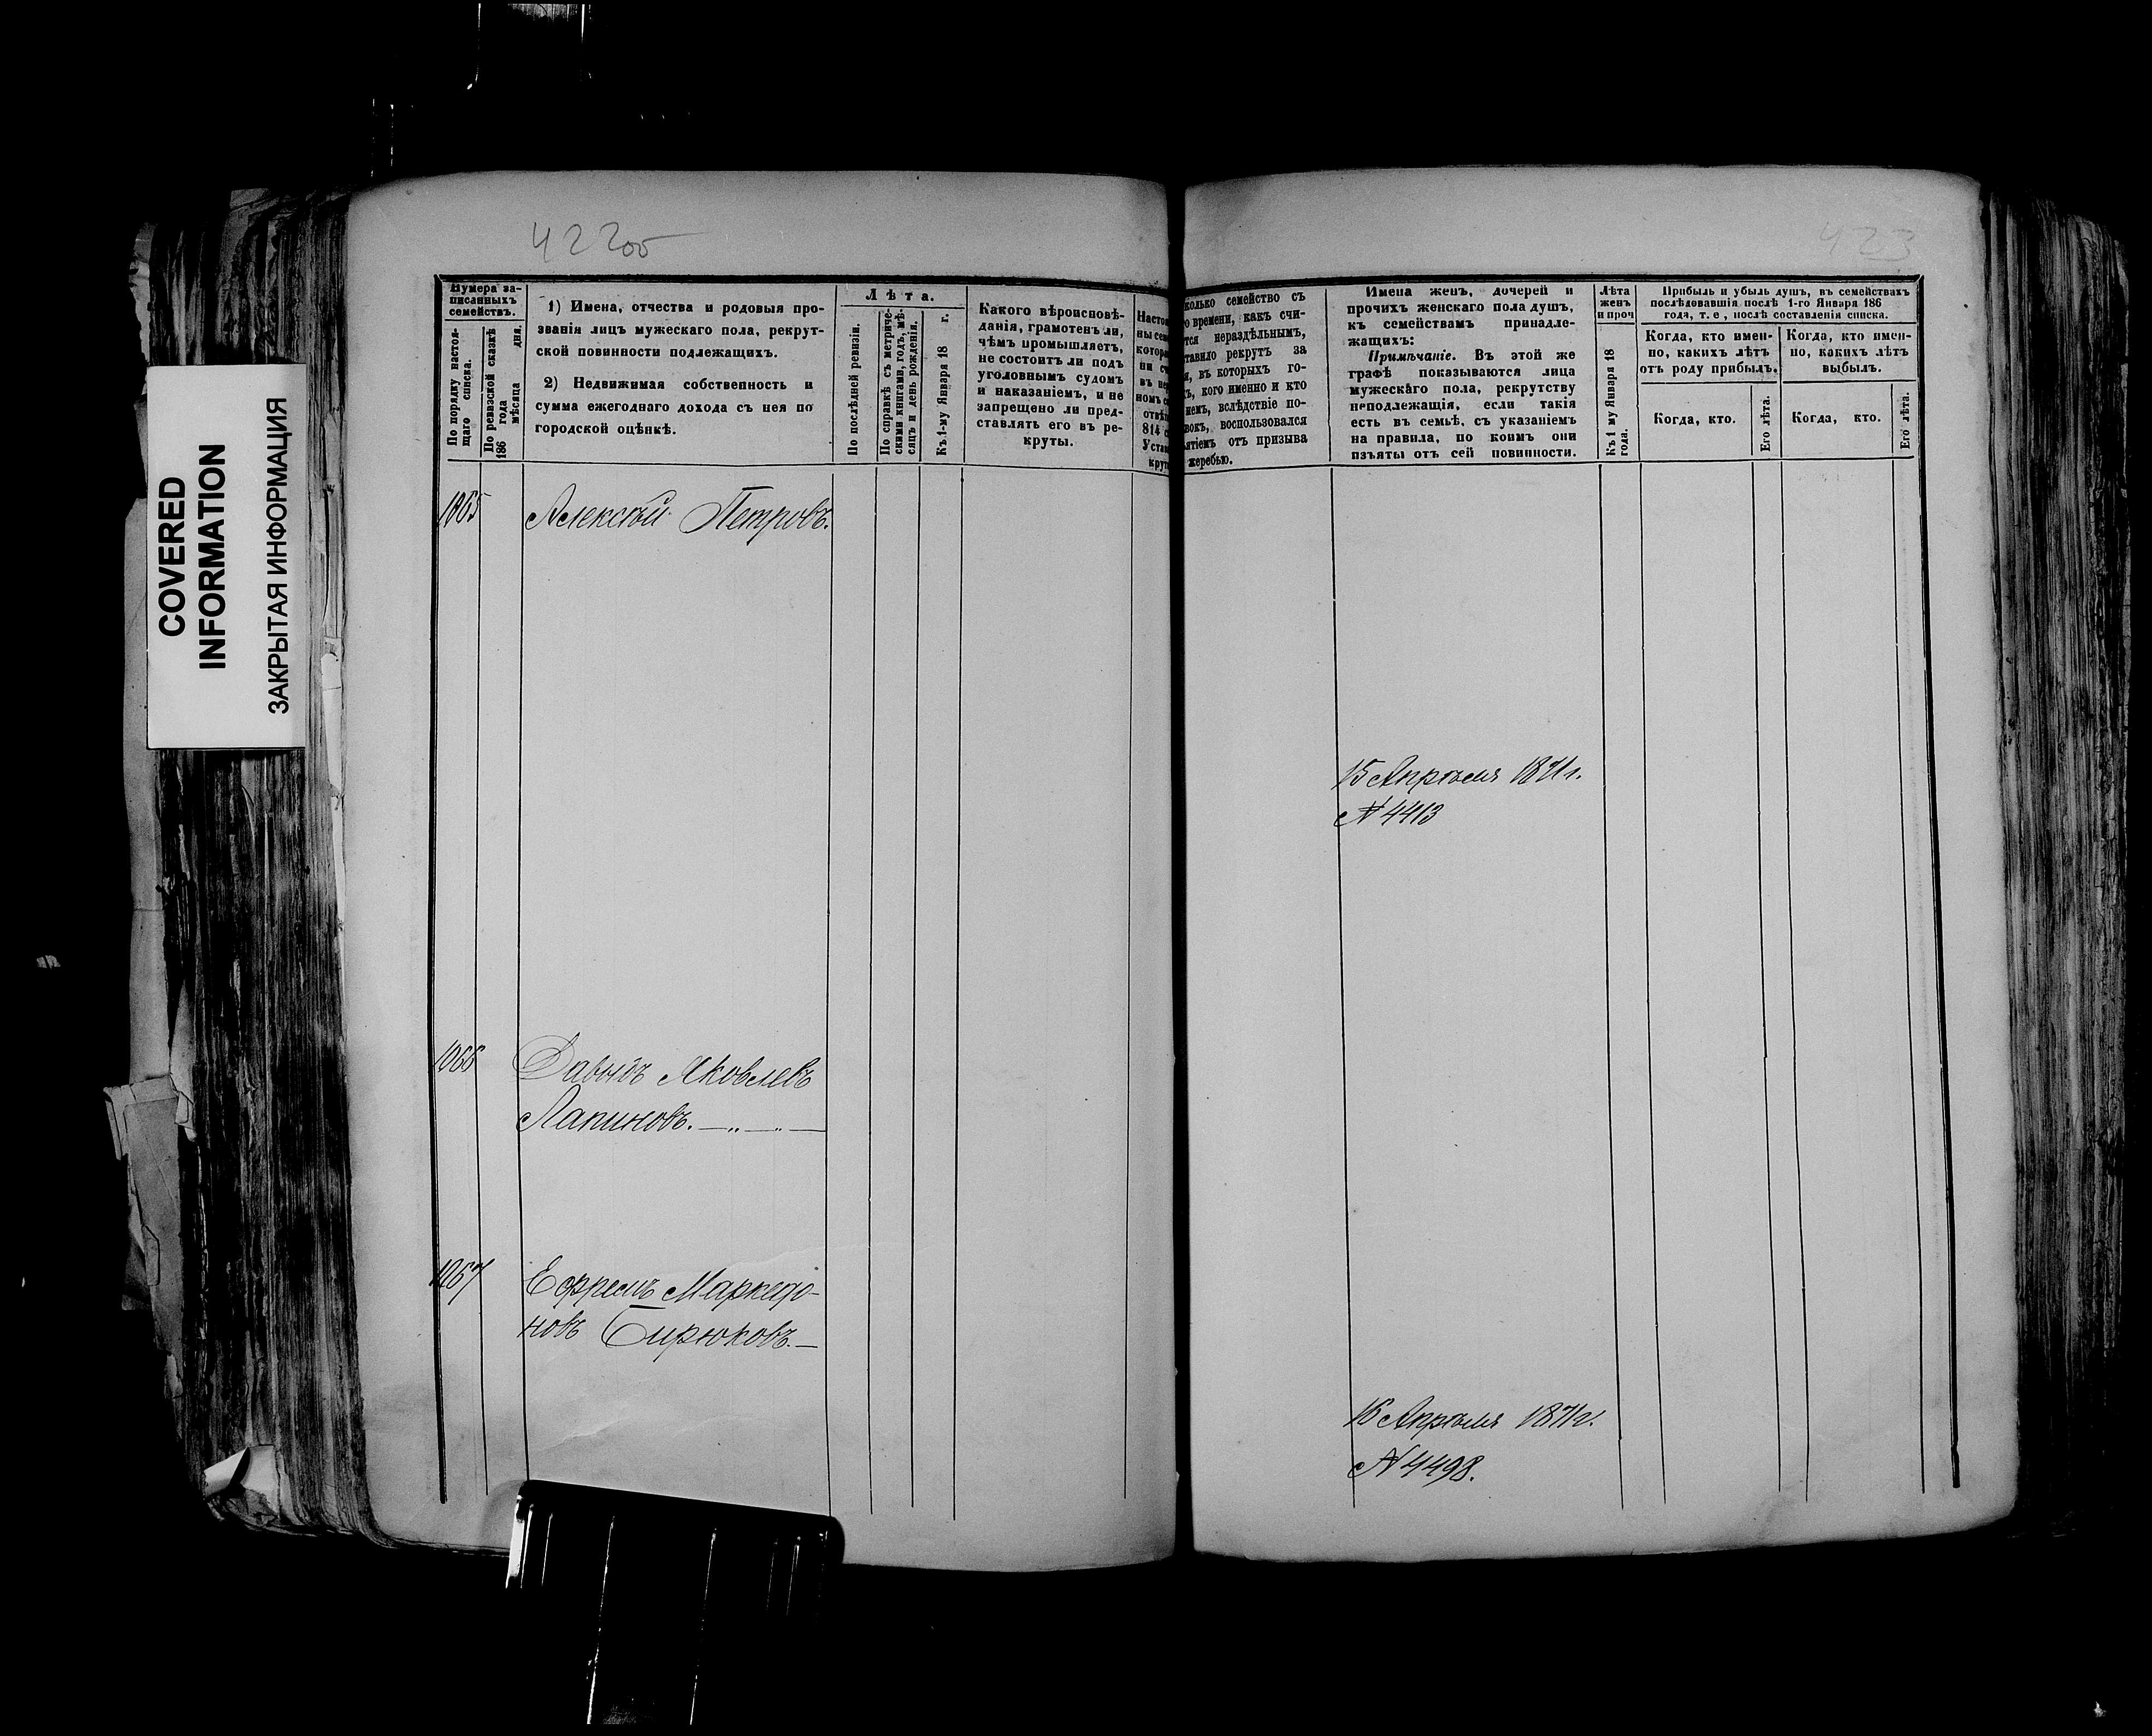 COVERED
INFORMATION
ЗАКРЫТАЯ ИНФОРМАЦИЯ
422об
Нумера за-
писанныхъ
семействъ.
По порядку настоя-
щаго списка.
По ревизской сказкѣ
186 года
мѣсяца дня.
1) Имена, отчества и родовыя про-
званія лицъ мужескаго пола, рекрут-
ской повинности подлежащихъ.
2) Недвижимая собственность и
сумма ежегоднаго дохода съ нея по
городской оцѣнкѣ.
Лѣта.
По послѣдней ревизіи.
По справкѣ съ метриче-
скими книгами, годъ, мѣ-
сяцъ и день рожденія.
Къ 1-му Января 18 г.
Какого вѣроисповѣ-
данія, грамотенъ ли,
чѣмъ промышляетъ,
не состоитъ ли подъ
уголовнымъ судомъ
и наказаніемъ, и не
запрещено ли пред-
ставлять его въ ре-
круты.
1065
Алексѣй Петровъ.
1066
Давыдъ Яковлевъ
Лапиновъ.
1067
Ефремъ Маркедо-
новъ Бирюковъ.
423
колько семейство съ
о времени, какъ счи-
тся нераздѣльнымъ,
тавило рекрутъ за
я, въ которыхъ го-
ъ, кого именно и кто
немъ, вслѣдствіе по-
вокъ, воспользовался
ятіемъ отъ призыва
жеребью.
Имена женъ, дочерей и
прочихъ женскаго пола душъ,
къ семействамъ принадле-
жащихъ:
Примѣчаніе. Въ этой же
графѣ показываются лица
мужескаго пола, рекрутству
неподлежащія, если такія
есть въ семьѣ, съ указаніемъ
на правила, по коимъ они
изъяты отъ сей повинности.
Лѣта
женъ
и проч
Къ 1 му Января 18
года.
Прибыль и убыль душъ, въ семействахъ
послѣдовавшія послѣ 1-го Января 186
года, т. е, послѣ составленія списка.
Когда, кто имен-
но, какихъ лѣтъ
отъ роду прибылъ.
Когда, кто.
Его лѣта.
Когда, кто имен-
но, какихъ лѣтъ
выбылъ.
Когда, кто.
Его лѣта.
15 Апрѣля 1871 г.
№ 4413
16 Апрѣля 1871 г.
№ 4498.